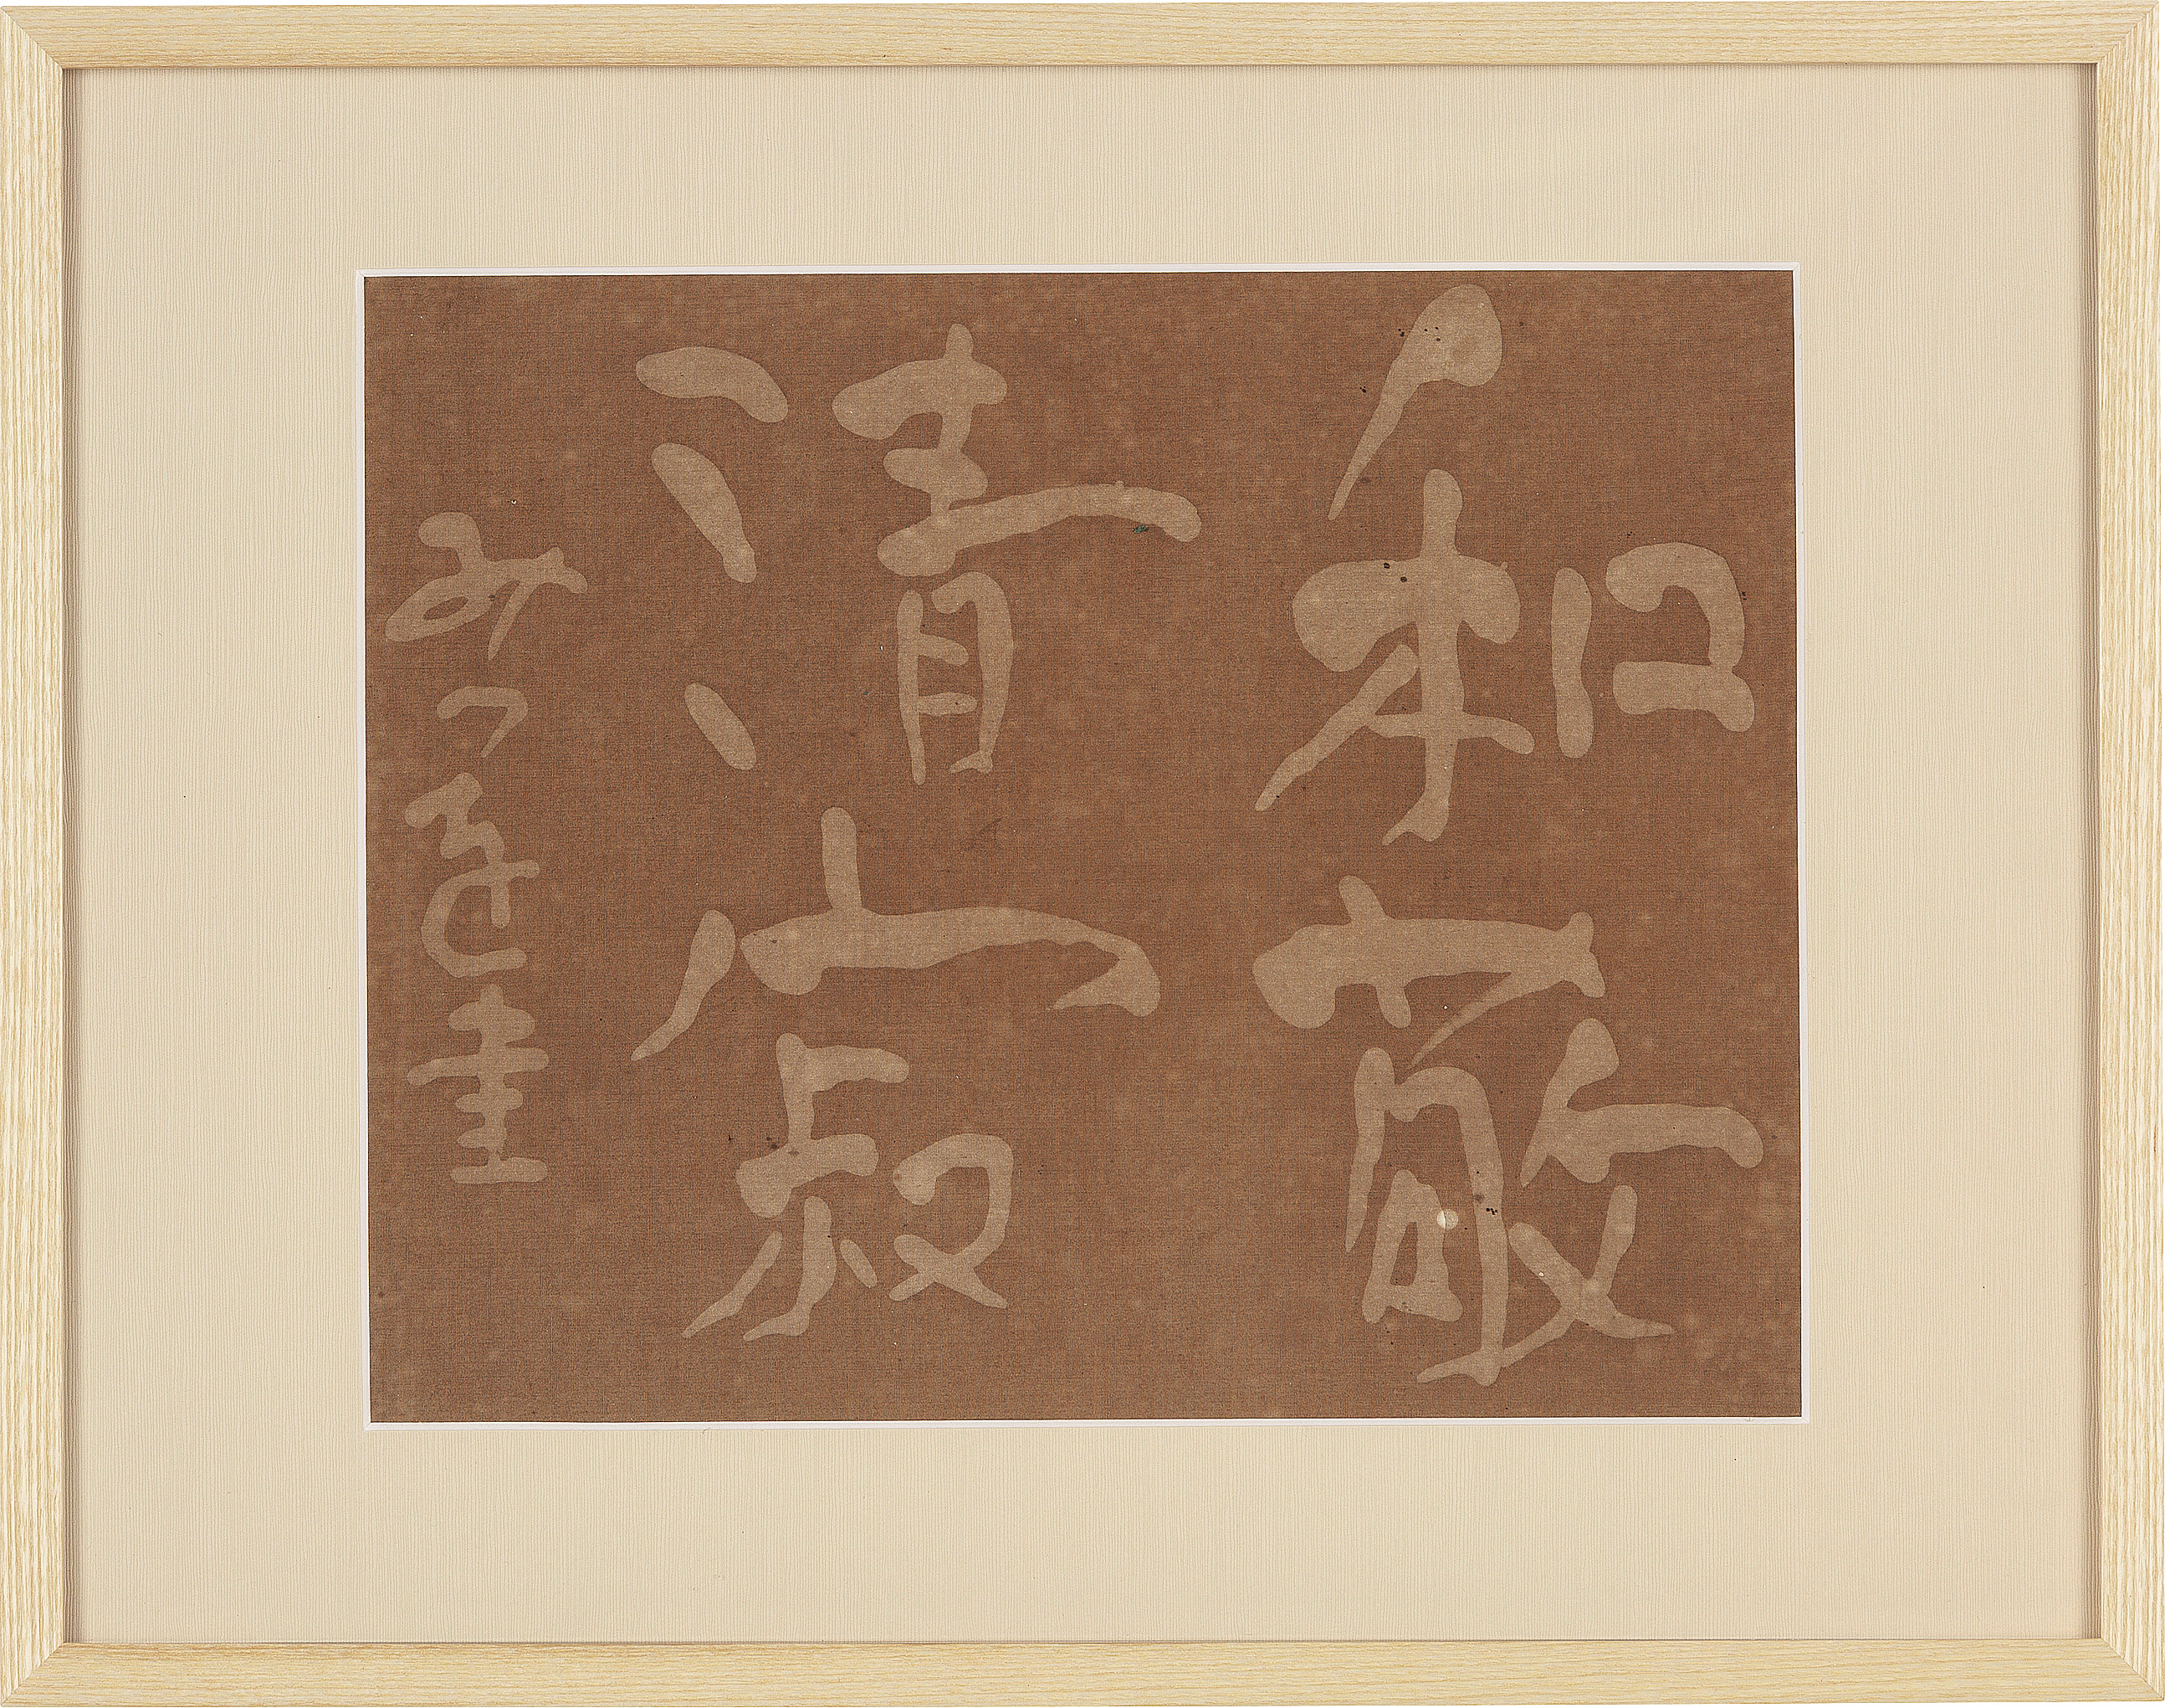 和敬
清寂
みつを書